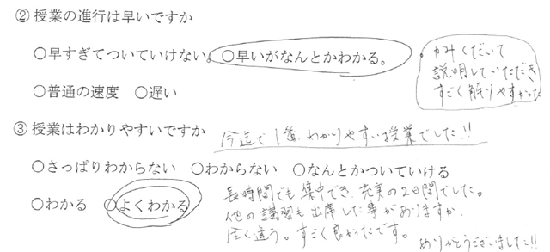 ② 授業の進行は早いですか
○早すぎてついていけない。 ○早いがなんとかわかる。
○普通の速度 ○遅い
かみくだいて
説明していただき
すごく解りやすかった
③ 授業はわかりやすいですか
今迄で1番わかりやすい授業でした!!
○さっぱりわからない ○わからない ○なんとかついていける
○わかる ○よくわかる
長時間でも集中でき、充実の2日間でした。
他の講習も出席した事がありますが、
全く違う。すごく良かったです。
ありがとうございました!!